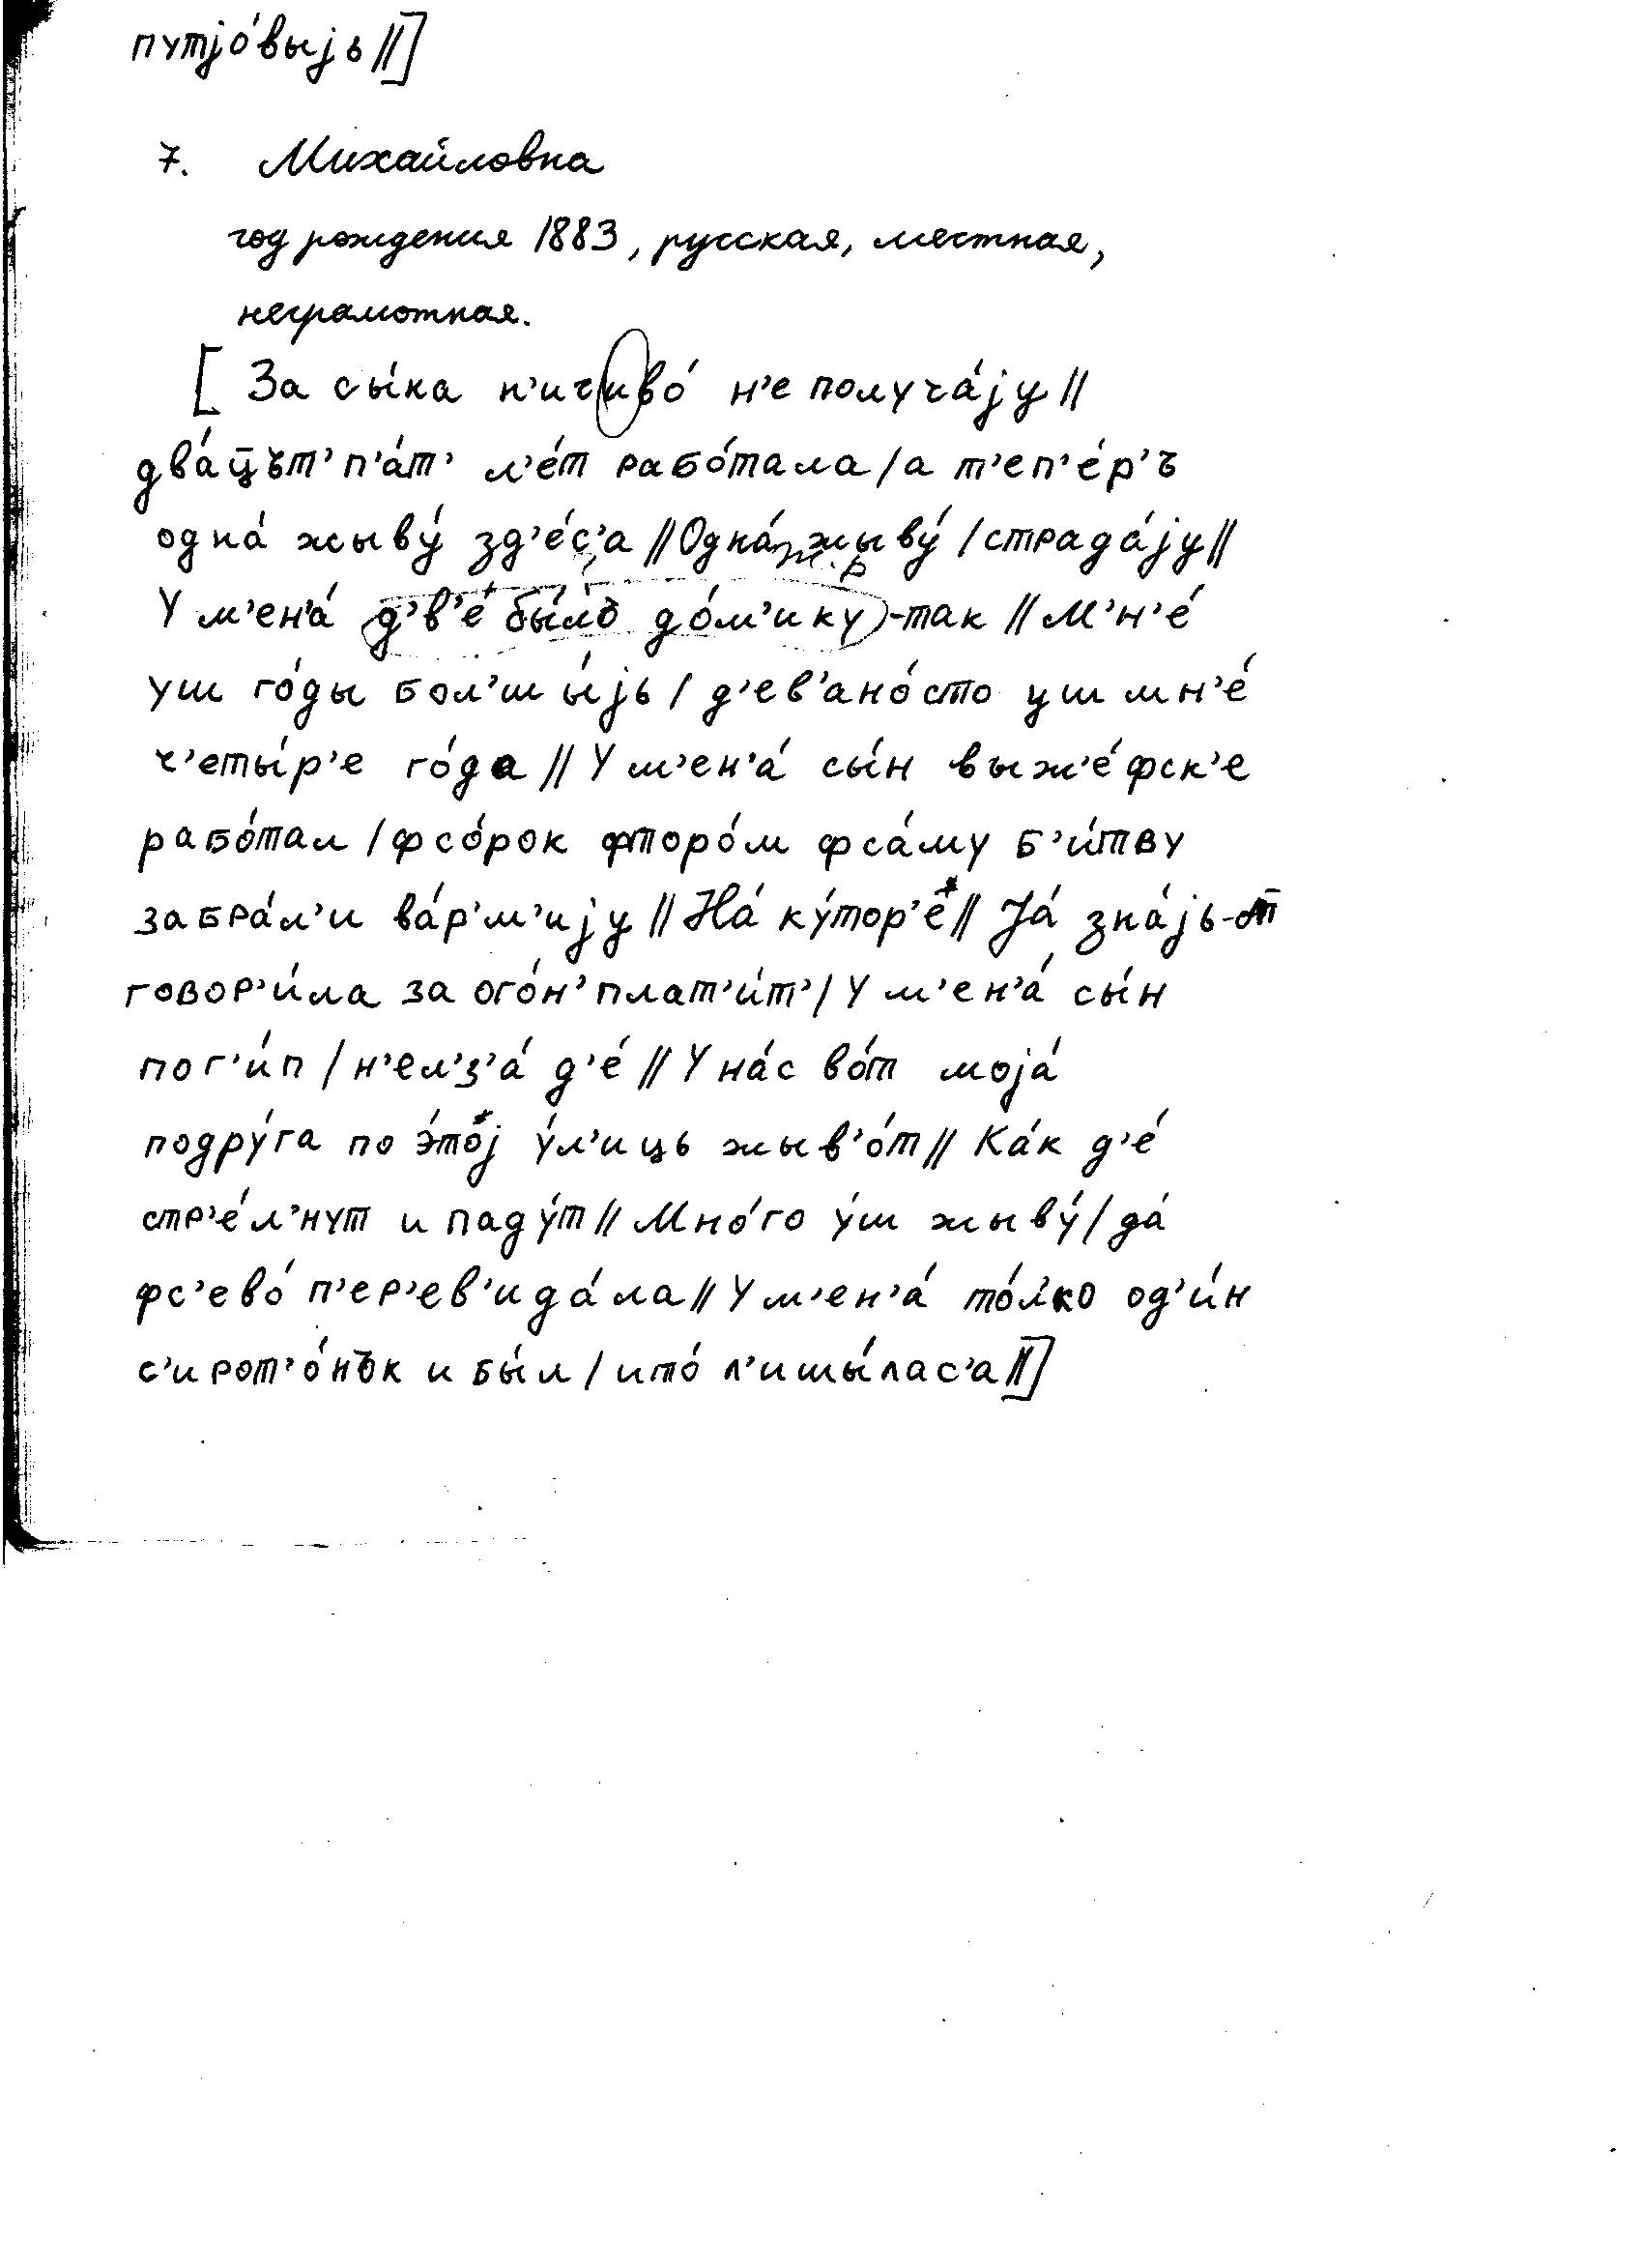 путjо́выjь//]
7. Михайловна
год рождения 1883, русская, местная,
неграмотная.
[За сы́на н'ичиво́ н'е получа́jу//
два́ц̄ът' п'а́т' л'е́т рабо́тала/а т'еп'е́р'ъ
одна́ жыву́ зд'е́с'а//Одна́ жыву́/страда́jу//
У м'ен'а́ д'в'е́ бы́лъ до́м'ику-так//М'н'е́
уш го́ды бол'шы́jь/д'ев'ано́сто уш мн'е́
ч'еты́р'е го́да//У м'ен'а́ сы́н выж'е́фск'е
рабо́тал/фсо́рок фторо́м фса́му б'и́тву
забра́л'и ва́р'м'иjу//На́ ку́тор'е*//Jа́ зна́jь-от
говор'и́ла за ого́н' плат'и́т'/У м'ен'а́ сы́н
пог'и́п/н'ел'з'а́ д'е́//У на́с во́т моjа́
подру́га по э́тоj у́л'иць жыв'о́т//Ка́к д'е́
стр'е́л'нут и паду́т//Мно́го у́ш жыву́/да́
фс'ево́ п'ер'ев'ида́ла//У м'ен'а́ то́л'ко од'и́н
с'ирот'о́нък и бы́л/ито́ л'ишы́лас'а//]